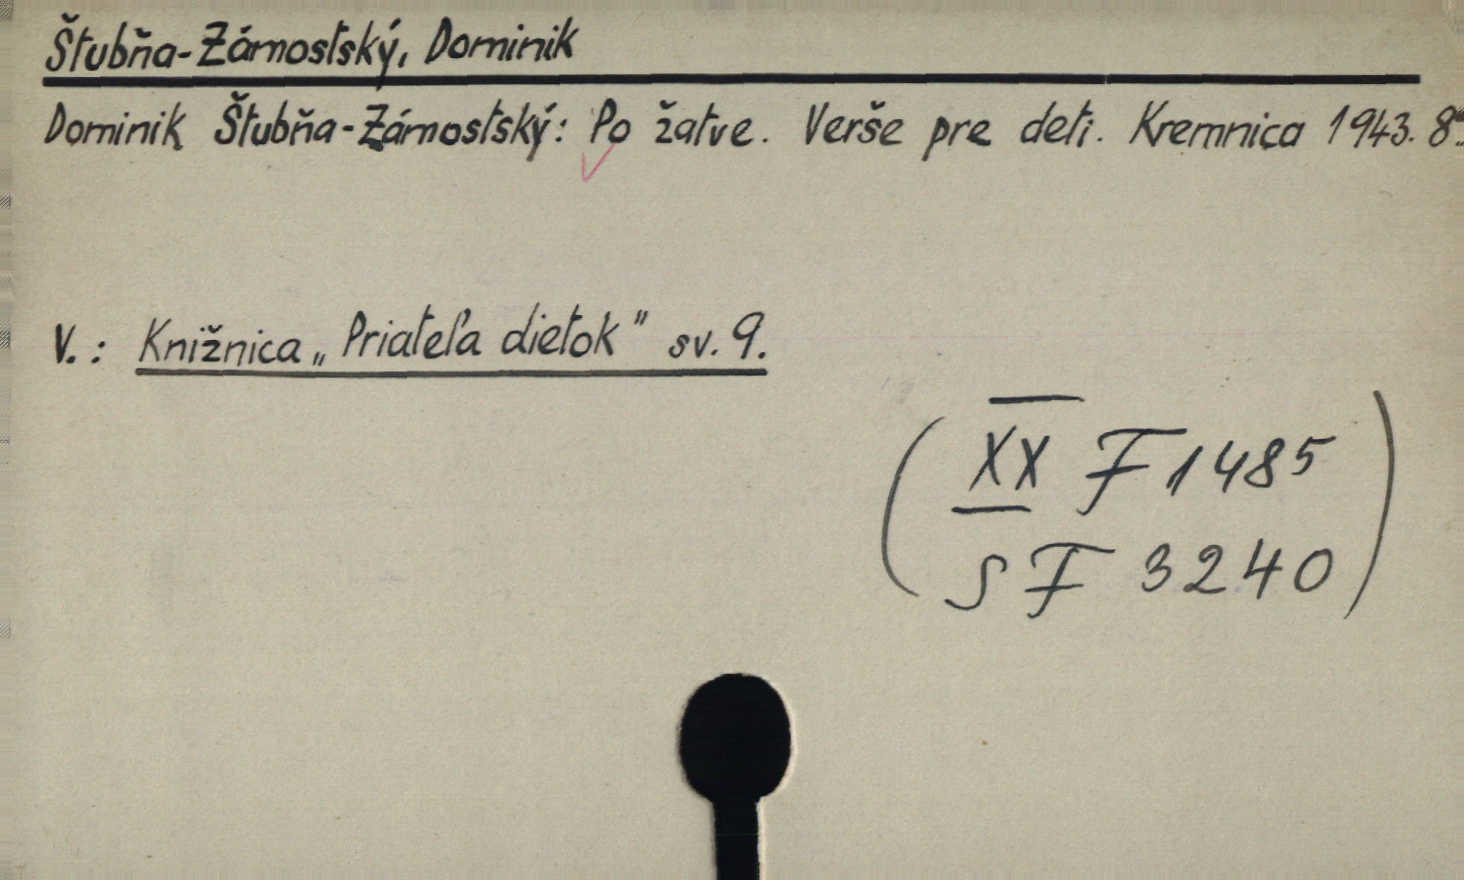 Štubňa-Zámostský, Dominik
Dominik Štubňa-Zámostský: Po žatve. Verše pre deti. Kremnica 1943. 8°.
V.: Knižnica „Priateľa dietok" sv. 9.
(XX F 1485
S F 3240)